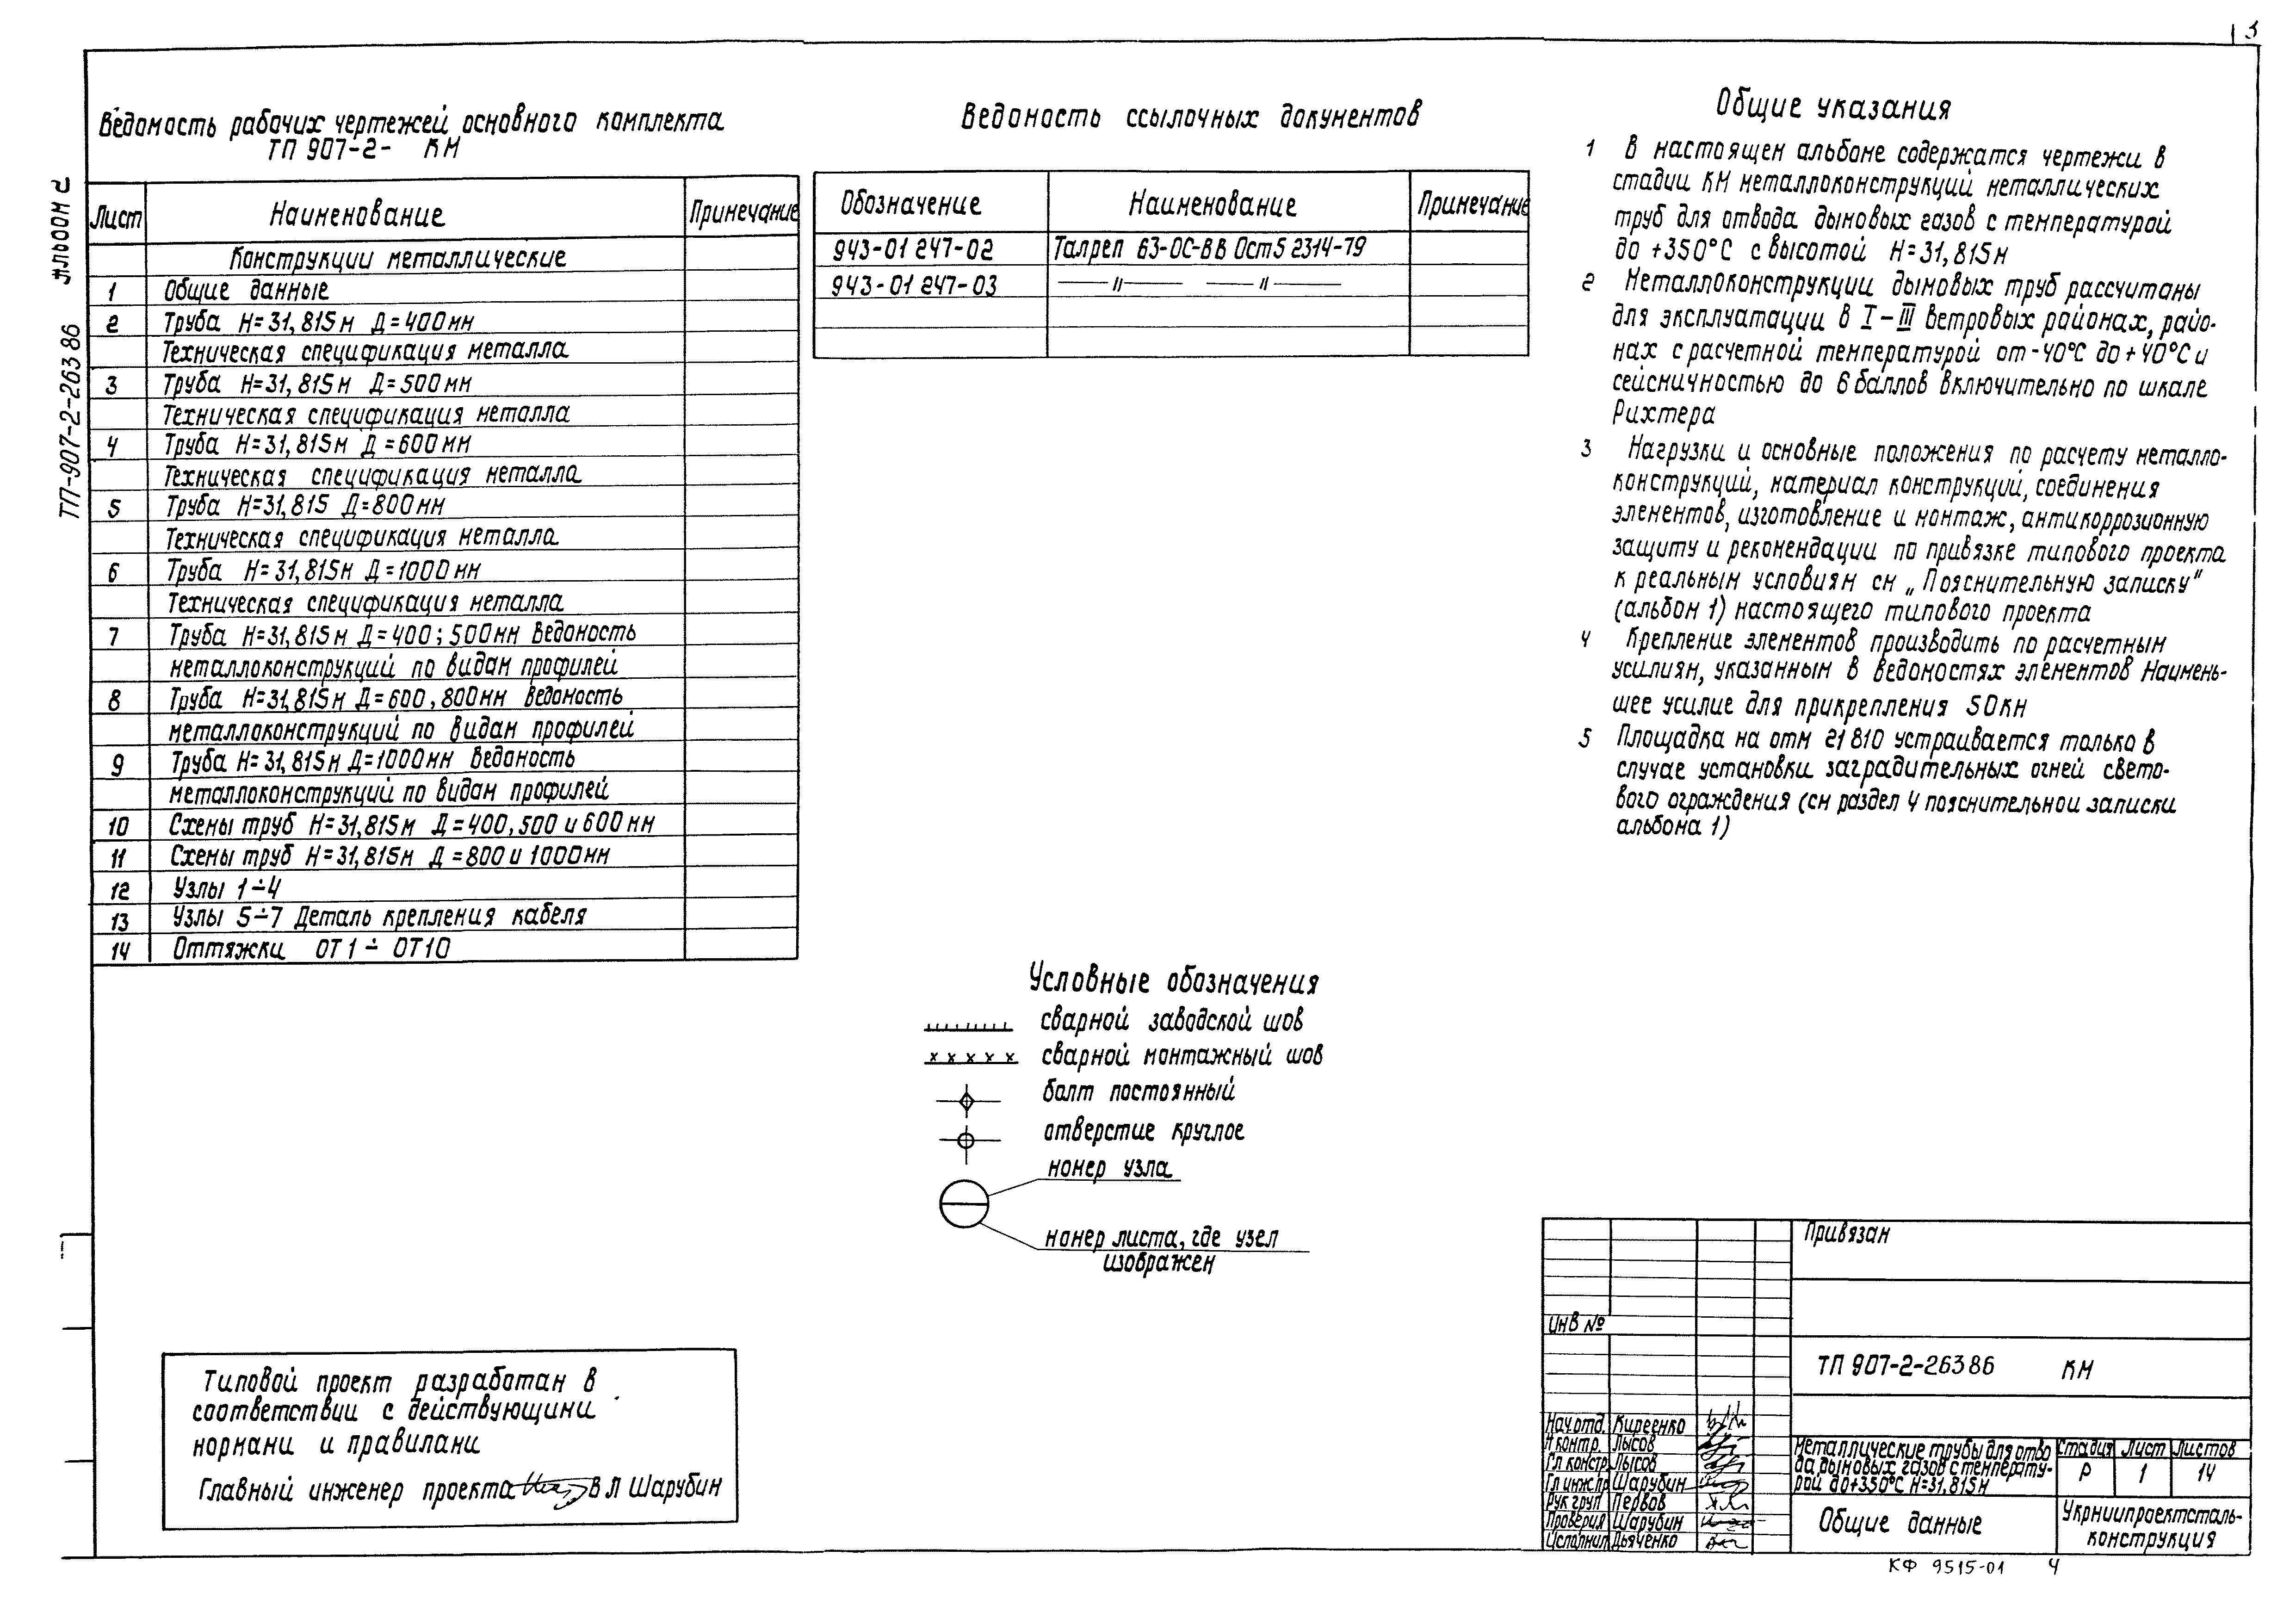 3
Альбом 2
ТП-907-2-263 86
Ведомость рабочих чертежей основного комплекта
ТП 907-2- КМ
Лист Наименование Примечание
Конструкции металлические
1 Общие данные
2 Труба Н=31,815м Д=400мм
Техническая спецификация металла
3 Труба Н=31,815м Д=500мм
Техническая спецификация металла
4 Труба Н=31,815м Д=600мм
Техническая спецификация металла
5 Труба Н=31,815 Д=800мм
Техническая спецификация металла
6 Труба Н=31,815м Д=1000мм
Техническая спецификация металла
7 Труба Н=31,815м Д=400; 500мм Ведомость
металлоконструкций по видам профилей
8 Труба Н=31,815м Д=600, 800мм Ведомость
металлоконструкций по видам профилей
9 Труба Н=31,815м Д=1000мм Ведомость
металлоконструкций по видам профилей
10 Схемы труб Н=31,815м Д=400, 500 и 600мм
11 Схемы труб Н=31,815м Д=800 и 1000мм
12 Узлы 1÷4
13 Узлы 5÷7 Деталь крепления кабеля
14 Оттяжки ОТ1 ÷ ОТ10
Ведомость ссылочных документов
Обозначение Наименование Примечание
943-01 247-02 Талреп 63-ОС-ВВ Ост5 2314-79
943-01 247-03 —〃— —〃—
Общие указания
1 В настоящем альбоме содержатся чертежи в
стадии КМ металлоконструкций металлических
труб для отвода дымовых газов с температурой
до +350°С с высотой Н=31,815м
2 Металлоконструкции дымовых труб рассчитаны
для эксплуатации в I-III ветровых районах, райо-
нах с расчетной температурой от -40°С до +40°С и
сейсмичностью до 6 баллов включительно по шкале
Рихтера
3 Нагрузки и основные положения по расчету металло-
конструкций, материал конструкций, соединения
элементов, изготовление и монтаж, антикоррозионную
защиту и рекомендации по привязке типового проекта
к реальным условиям см „Пояснительную записку"
(альбом 1) настоящего типового проекта
4 Крепление элементов производить по расчетным
усилиям, указанным в ведомостях элементов Наимень-
шее усилие для прикрепления 50кн
5 Площадка на отм 21 810 устраивается только в
случае установки заградительных огней свето-
вого ограждения (см раздел 4 пояснительной записки
альбома 1)
Условные обозначения
сварной заводской шов
сварной монтажный шов
болт постоянный
отверстие круглое
номер узла
номер листа, где узел
изображен
Типовой проект разработан в
соответствии с действующими
нормами и правилами
Главный инженер проекта В Л Шарубин
Привязан
Инв №
ТП 907-2-263 86 КМ
Нач отд. Киреенко
Н контр. Лысов
Гл констр Лысов
Гл инж пр Шарубин
Рук груп Первов
Проверил Шарубин
Исполнил Дьяченко
Металлические трубы для отво
да дымовых газов с температу-
рой до+350°С Н=31,815м
Стадия Лист Листов
Р 1 14
Общие данные
Укрниипроектсталь-
конструкция
КФ 9515-01 4